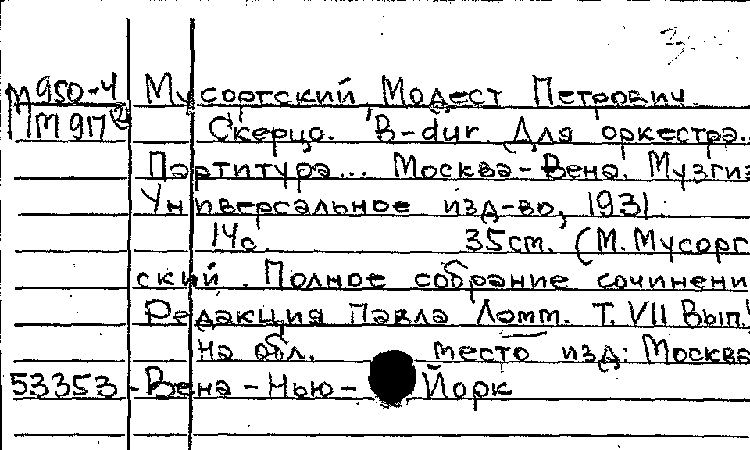 М950-4 Мусоргский, Модест Петрович.
ММ917② Скерцо. B-dur. Для оркестра.
Партитура... Москва-Вена. Музгиз
Универсальное изд-во, 1931.
14с. 35cm. (М. Мусорг
ский. Полное собрание сочинени
Редакция Павла Ламм. Т. VII Вып.
На обл. место изд: Москва
53353 -Вена-Нью-Йорк